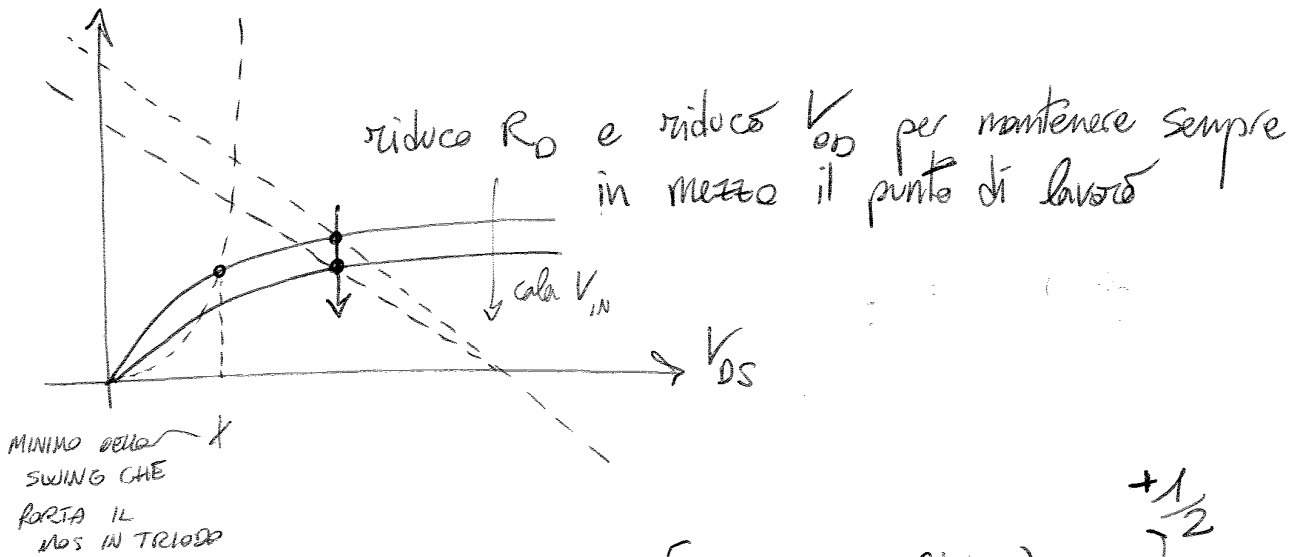 riduco R_D e riduco V_OD per mantenere sempre
in mezzo il punto di lavoro
cala V_IN
V_DS
MINIMO DELLO
SWING CHE
PORTA IL
MOS IN TRIODO
+1/2